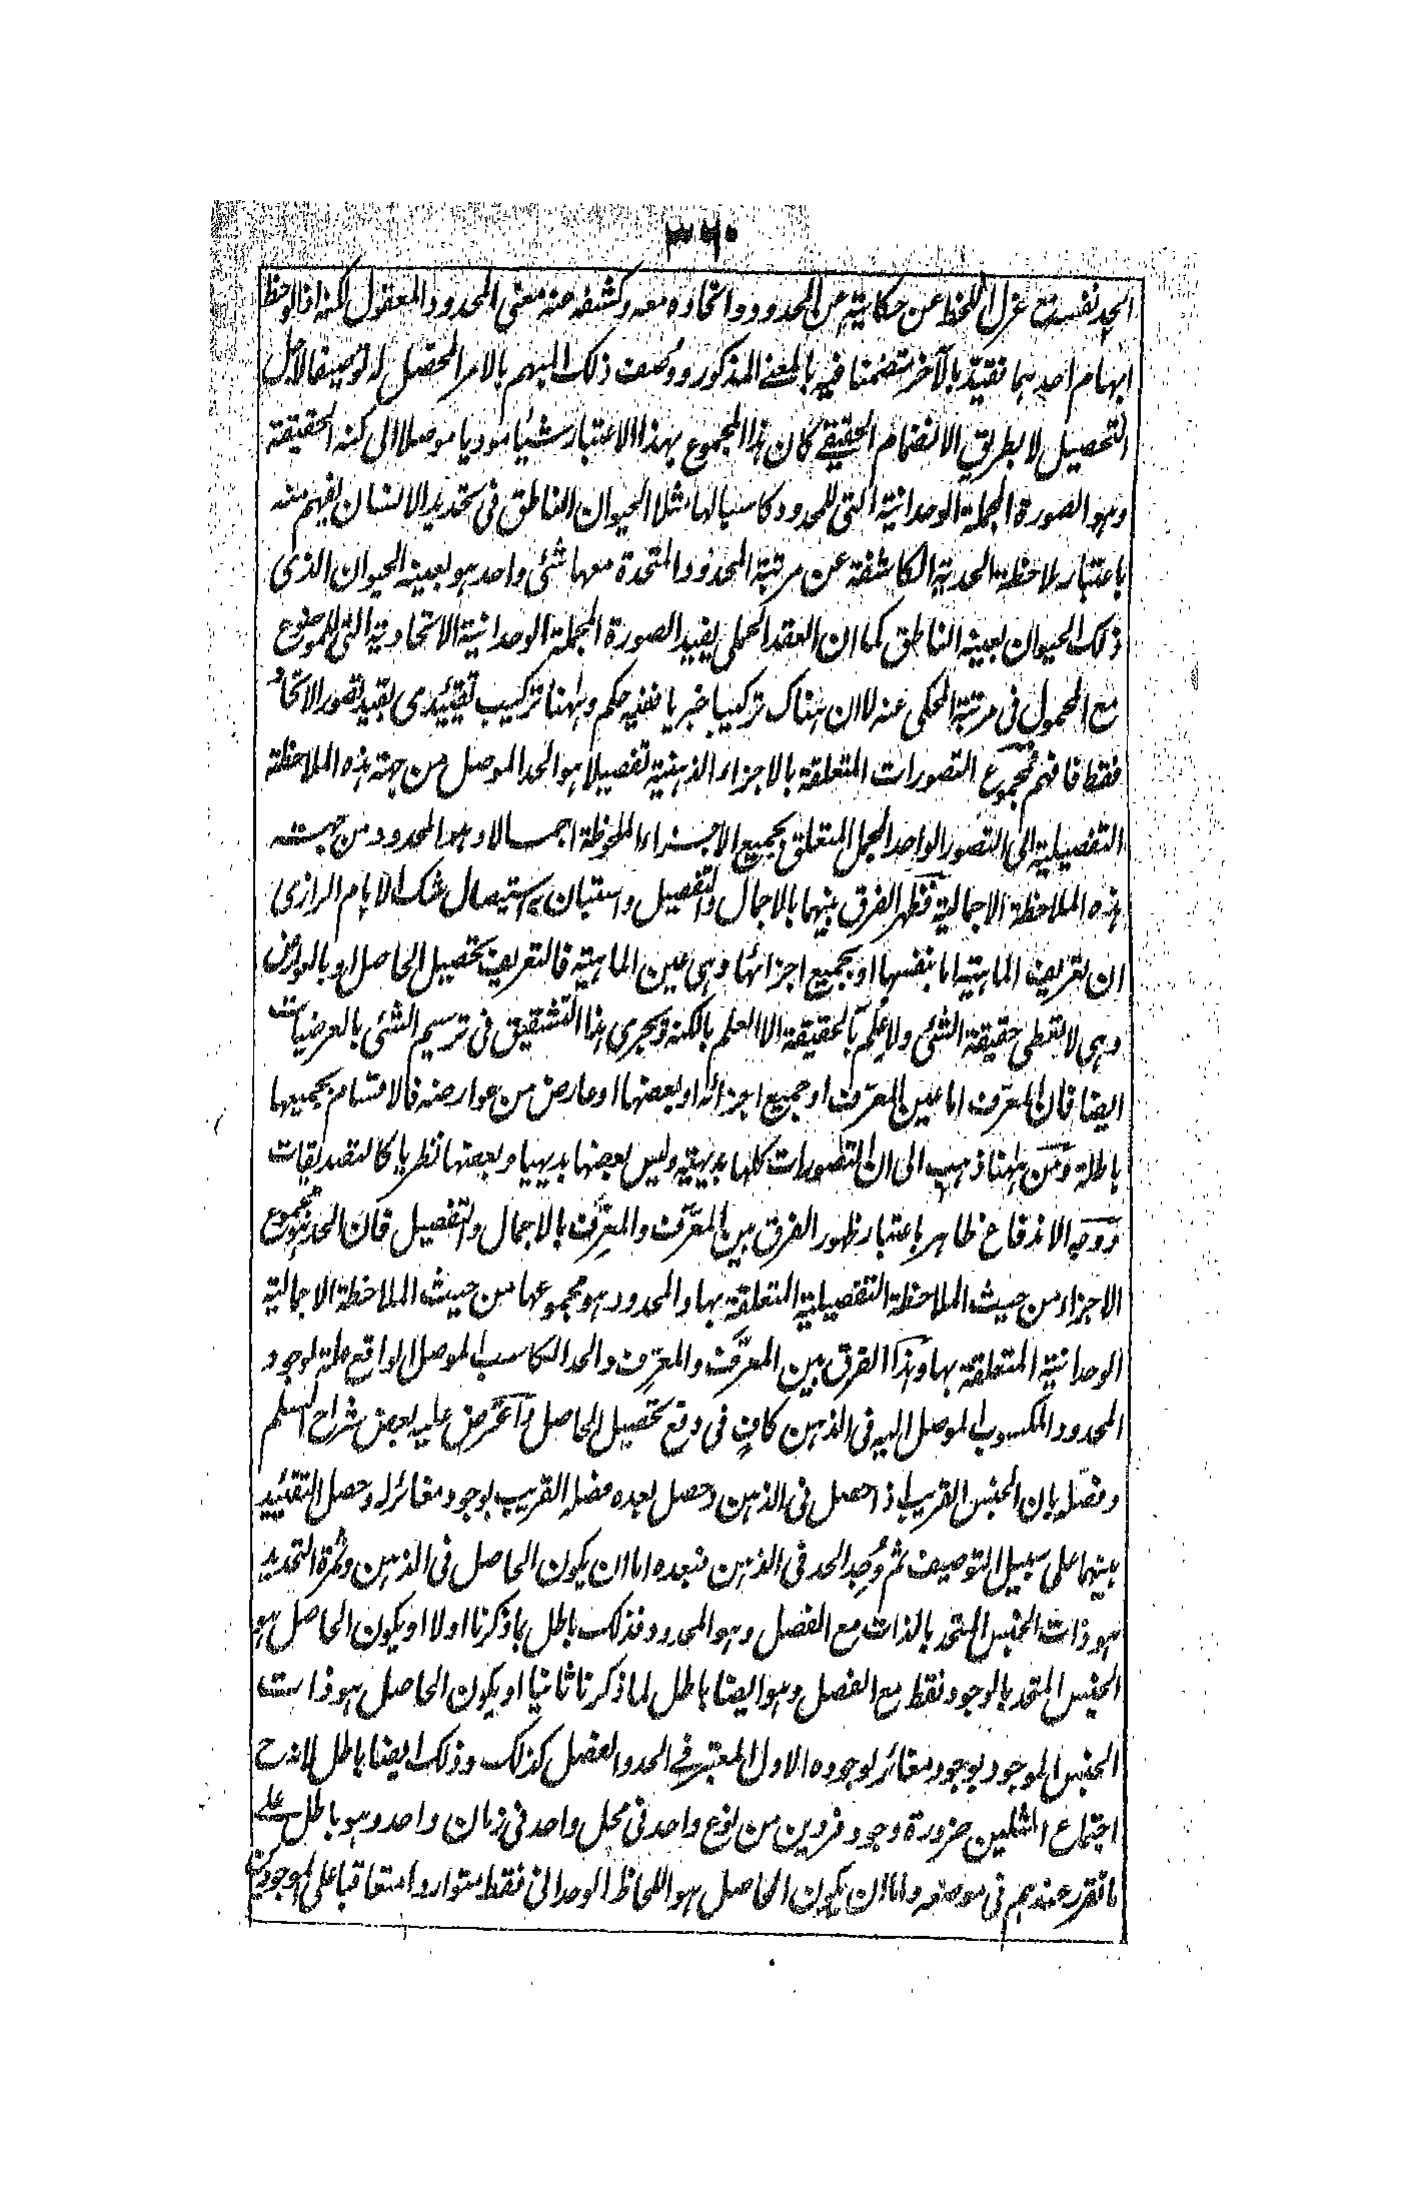 ٣٦٠
الحد نفسه مع عزل اللحظ عن حكايته عن المحدود واتحاده معه وكشفه عنه معنى المحدود المعقول لكنه اذا لوحظ
ابهام احدهما فقيد بالآخر متضمنا فيه بالمعنى المذكور ووصف ذلك المبهم بالامر المحصل له توصيفا لاجل
التحصيل لا بطريق الانضمام الحقيقي كان هذا المجموع بهذا الاعتبار شيئا موديا موصلا الى كنه الحقيقة
وهو الصورة المجملة الوحدانية التي للمحدود كاسبا لها مثلا الحيوان الناطق في تحديد الانسان يفهم منه
باعتبار ملاحظة الحدية الكاشفة عن مرتبة المحدود المتحدة معها شئ واحد هو بعينه الحيوان الذى
ذلك الحيوان بعينه الناطق كما ان العقد الحملى يفيد الصورة المجملة الوحدانية الاتحادية التي للموضوع
مع المحمول في مرتبة المحكى عنه لا ان هناك تركيبا خبريا ففيه حكم وههنا تركيب تقييدى يفيد تصور الاتحاد
فقط فافهم فمجموع التصورات المتعلقة بالاجزاء الذهنية تفصيلا هو الحد الموصل من جهة هذه الملاحظة
التفصيلية الى التصور الواحد المجمل المتعلق بجميع الاجزاء الملحوظة اجمالا وهو المحدود من جهت
هذه الملاحظة الاجمالية فظهر الفرق بينهما بالاجمال والتفصيل واستبان استيصال شك الامام الرازى
ان تعريف الماهية اما بنفسها او بجميع اجزائها وهى عين الماهية فالتعريف تحصيل الحاصل او بالعوارض
وهى لا تعطى حقيقة الشئ ولا علم بالحقيقة الا العلم بالكنه ويجرى هذا التشقيق في ترسيم الشئ بالعرضيات
ايضا فان المعرَّف اما عين المعرِّف او جميع اجزائه او بعضها او عارض من عوارضه فالاقسام بجميعها
باطلة ومن ههنا ذهب الى ان التصورات كلها بديهية وليس بعضها بديهيا وبعضها نظريا كالتصديقات
ووجه الاندفاع ظاهر باعتبار ظهور الفرق بين المعرَّف والمعرِّف بالاجمال والتفصيل فان الحد هو مجموع
الاجزاء من حيث الملاحظة التفصيلية المتعلقة بها والمحدود هو مجموعها من حيث الملاحظة الاجمالية
الوحدانية المتعلقة بها وهذا الفرق بين المعرَّف والمعرِّف والحد الكاسب الموصل الواقع علة لوجود
المحدود المكسوب الموصل اليه في الذهن كافٍ في دفع تحصيل الحاصل واعترض عليه بعض شراح السلم
وفصّله بان الجنس القريب اذا حصل في الذهن وحصل بعده فصله القريب بوجود مغائر له وحصل التقييد
بينهما على سبيل التوصيف ثم وُجِد الحد في الذهن فبعده اما ان يكون الحاصل في الذهن وثمرة التحديد
هو ذات الجنس المتحد بالذات مع الفصل وهو المحدود فذلك باطل بما ذكرنا اولا او يكون الحاصل هو
الجنس المتحد بالوجود فقط مع الفصل وهو ايضا باطل لما ذكرنا ثانيا او يكون الحاصل هو ذات
الجنس الموجود بوجود مغائر لوجوده الاول المعتبر في الحد والفصل كذلك وذلك ايضا باطل لانه ح
اجتماع المثلين ضرورة وجود فردين من نوع واحد في محل واحد في زمان واحد وهو باطل على
ما تقرر عندهم في موضعه واما ان يكون الحاصل هو اللحاظ الوحدانى فقط متواردا متعاقبا على الموجودين